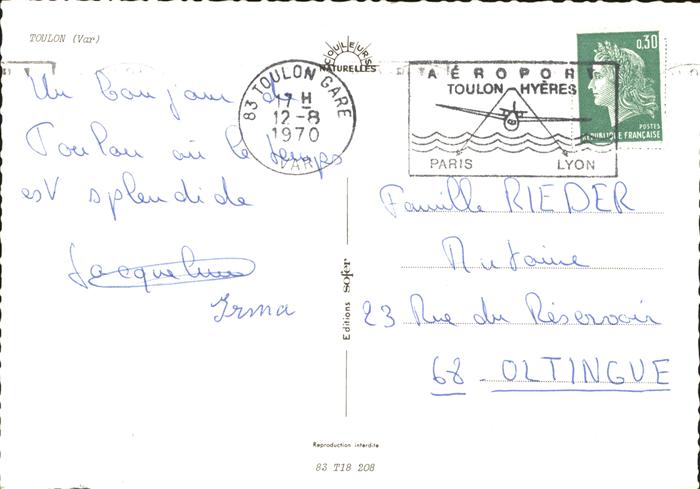 TOULON (Var)
COULEURS
NATURELLES
Un bonjour de
Toulon où le temps
est splendide
Jacqueline
Irma
83 TOULON GARE
17 H
12-8
1970
(VAR)
AÉROPORT
TOULON HYÈRES
PARIS LYON
0,30
POSTES
RÉPUBLIQUE FRANÇAISE
Famille RIEDER
Antoine
23 Rue du Réservoir
68 - OLTINGUE
Editions sofer
Reproduction interdite
83 T18 208